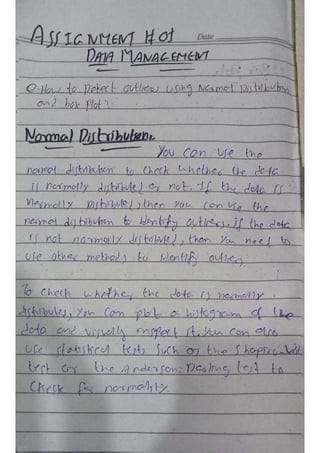 ASSIGNMENT # 01
Date
DATA MANAGEMENT
Q-How to Detect outliers using Normal Distribution
and box plot?
Normal Distribution:
You can use the
normal distribution to check whether the data
is normally distributed or not. If the data is
normally distributed, then you can use the
normal distribution to identify outliers. If the data
is not normally distributed, then you need to
use other methods to identify outliers
To check whether the data is normally
distributed, you can plot a histogram of the
data and visually inspect it. You can also
use statistical tests such as the Shapiro-Wilk
test or the Anderson-Darling test to
check for normality.